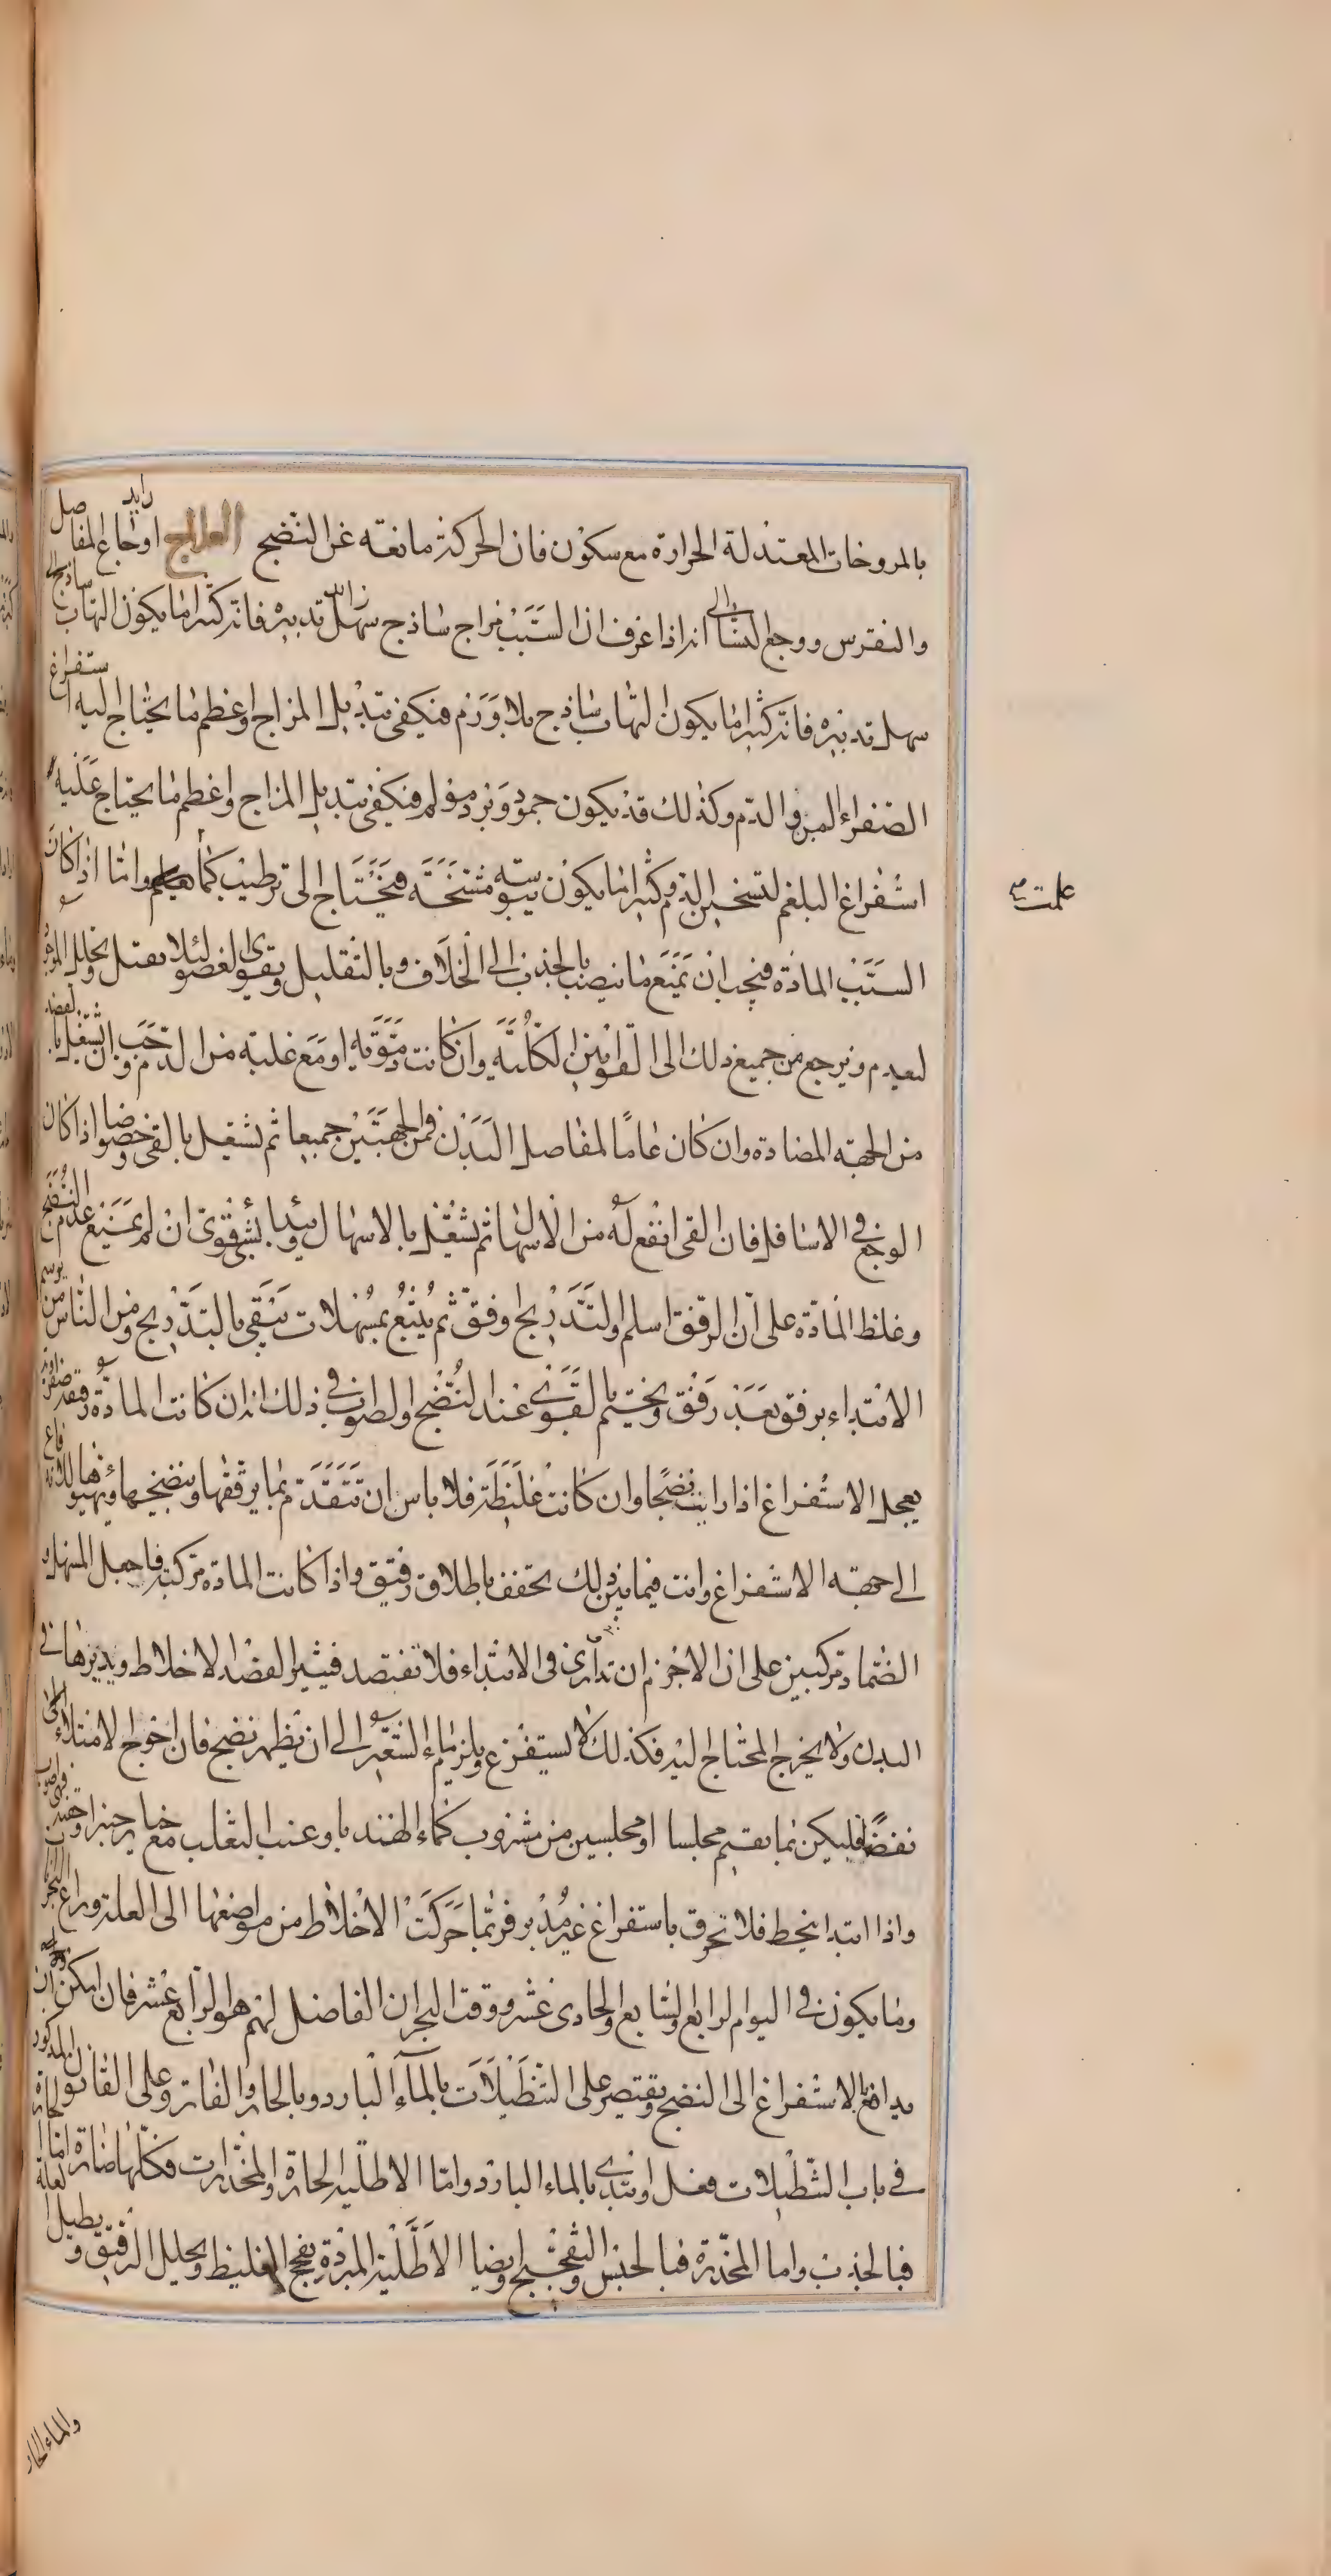 بالمروخات المعتدلة الحرارة مع سكون فان الحركة مانعة عن النضج العلاج اوجاع المفاصل
والنقرس ووجع النسا انه اذا عرف ان السبب مزاج ساذج سهل تدبيره فانه كثيرا ما يكون التهاب ساذج
سهل تدبيره فانه كثيرا ما يكون التهاب ساذج بلا ورم فيكفى تبديل المزاج واعظم ما يحتاج اليه استفراغ
الصفراء والدم وكذلك قد يكون جمود وبرد مؤلم فيكفى تبديل المزاج واعظم ما يحتاج عليه
استفراغ البلغم لتسخين الدم وكثيرا ما يكون يبوسة متشنجة فيحتاج الى ترطيب كما واما اذا كان
السبب المادة فيجب ان يمنع ما ينصب بالجذب الى الخلاف وبالتقليل ويقوى العضو لئلا يقبل ويحلل الموجود
ليعدم ويرجع من جميع ذلك الى القوانين الكلية وان كانت دموية او مع غلبة من الدم وجب ان تشتغل بالفصد
من الجهة المضادة وان كان عاما لمفاصل البدن فمن الجهتين جميعا ثم تشتغل بالقى وخصوصا اذا كان
الوجع فى الاسافل فان القى انفع له من الاسهال ثم تشتغل بالاسهال وتبدأ بشى قوى ان لم يمنع عدم النضج
وغلظ المادة على ان الرفق اسلم والتدريج اوفق ثم يتبع بمسهلات تنقى بالتدريج ومن الناس من يوسم
الابتداء برفق بعد رفق ويختم بالقوى عند النضج والصواب فى ذلك انه ان كانت المادة رقيقة
يعجل الاستفراغ اذا رايت نضجا وان كانت غليظة فلا باس ان تتقدم بما يرققها وينضجها ويهيؤها
الى جهة الاستفراغ وانت فيما بين ذلك تخفف باطلاق رقيق واذا كانت المادة مركبة فاجعل المسهل و
الضماد مركبين على ان الاحزم ان تدارى فى الابتداء فلا تفتصد فيثير الفصد الاخلاط ويديرها فى
البدن ولا يخرج المحتاج اليه فكذلك لا يستفرغ ويلزم ماء الشعير الى ان تظهر نضج فان احوج الامتلاء الى
نفض فليكن بما يقيم مجلسا او مجلسين من مشروب كماء الهندبا وعنب الثعلب مع خيار شنبر او حقنة
واذا ابتدا ينحط فلا تحرق باستفراغ غير مدبر فربما حركت الاخلاط من مواضعها الى العلة وراع البحران
وما يكون فى اليوم الرابع والسابع والحادى عشر ووقت البحران الفاضل لهم هو الرابع عشر فان امكن ان
يدافع بالاستفراغ الى النضج ويقتصر على التنطيلات بالماء البارد وبالحار والفاتر وعلى القانون المذكور
فى باب التنطيلات فعل وابتدى بالماء البارد واما الاطلية الحارة والمخدرات فكلها ضارة اما الحارة
فبالجذب واما المخدرة فبالحبس والتفجيج وايضا الاطلية المبردة يفجج الغليظ ويحلل الرقيق ويطيل العلة
والماء الحار
علمت